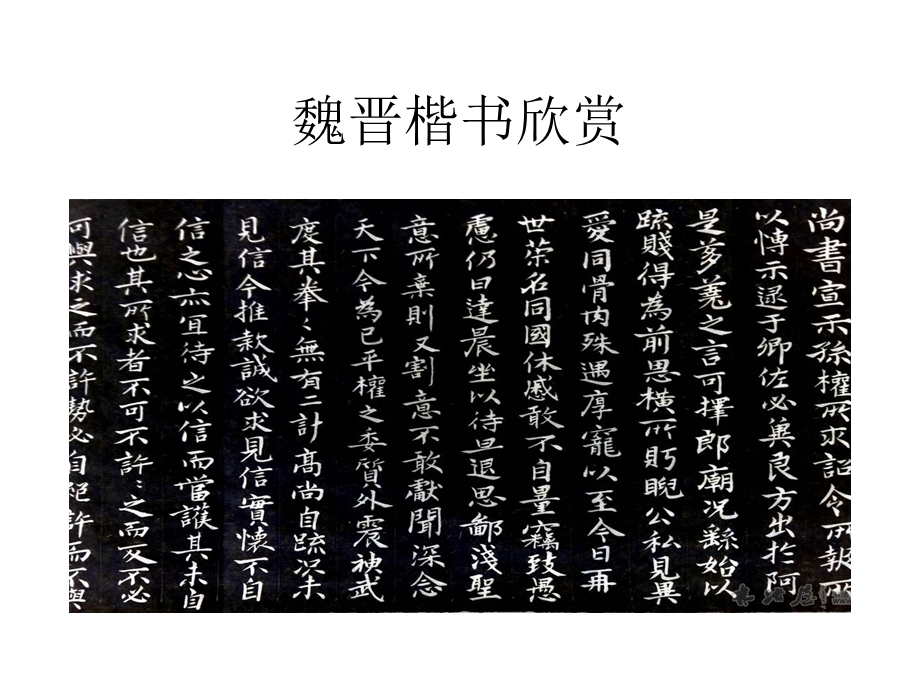 魏晋楷书欣赏
尚書宣示孫權所求詔令所報所
以博示逮于卿佐必冀良方出於阿
是芻蕘之言可擇郎廟況繇始以
疏賤得為前恩橫所盻睨公私見異
愛同骨肉殊遇厚寵以至今日再
世榮名同國休慼敢不自量竊致愚
慮仍日達晨坐以待旦退思鄙淺聖
意所棄則又割意不敢獻聞深念
天下今為已平權之委質外震神武
度其拳〻無有二計高尚自疏況未
見信今推款誠欲求見信實懷不自
信之心亦宜待之以信而當護其未自
信也其所求者不可不許〻之而反不必
可與求之而不許勢必自絕許而不與